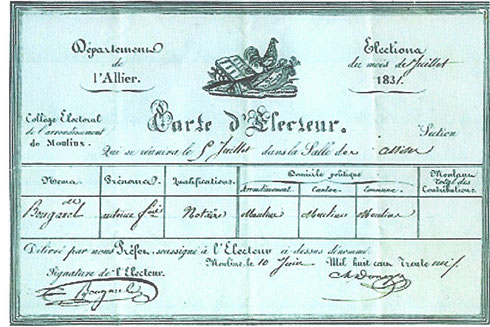 Département
de
l'Allier.
Elections
du mois de Juillet
Collège Electoral
de l'arrondissement
de Moulins.
Carte d'Electeur.
Section
Qui se réunira le Juillet dans la Salle des
Noms. Prénoms. Qualifications. Domicile politique Montant total des Contributions.
Arrondissement. Canton. Commune.
Bougarel Notaire Moulins Moulins Moulins
Délivré par nous Préfet soussigné à l'Electeur ci dessus dénommé.
Moulins, le 10 Juin Mil huit cent Trente neuf
Signature de l'Electeur.
Bougarel